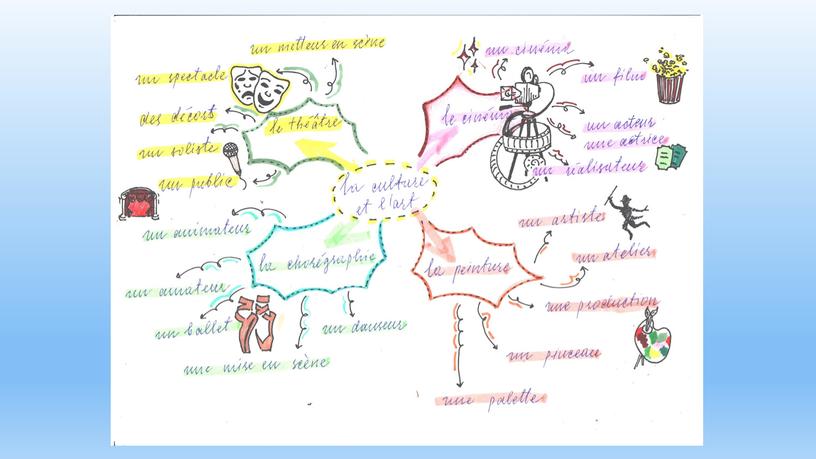 la culture
et l'art
le théâtre
un metteur en scène
un spectacle
des décors
un soliste
un public
le cinéma
un cinéma
un film
un acteur
une actrice
un réalisateur
la chorégraphie
un animateur
un amateur
un ballet
une mise en scène
un danseur
la peinture
un artiste
un atelier
une production
un pinceau
une palette